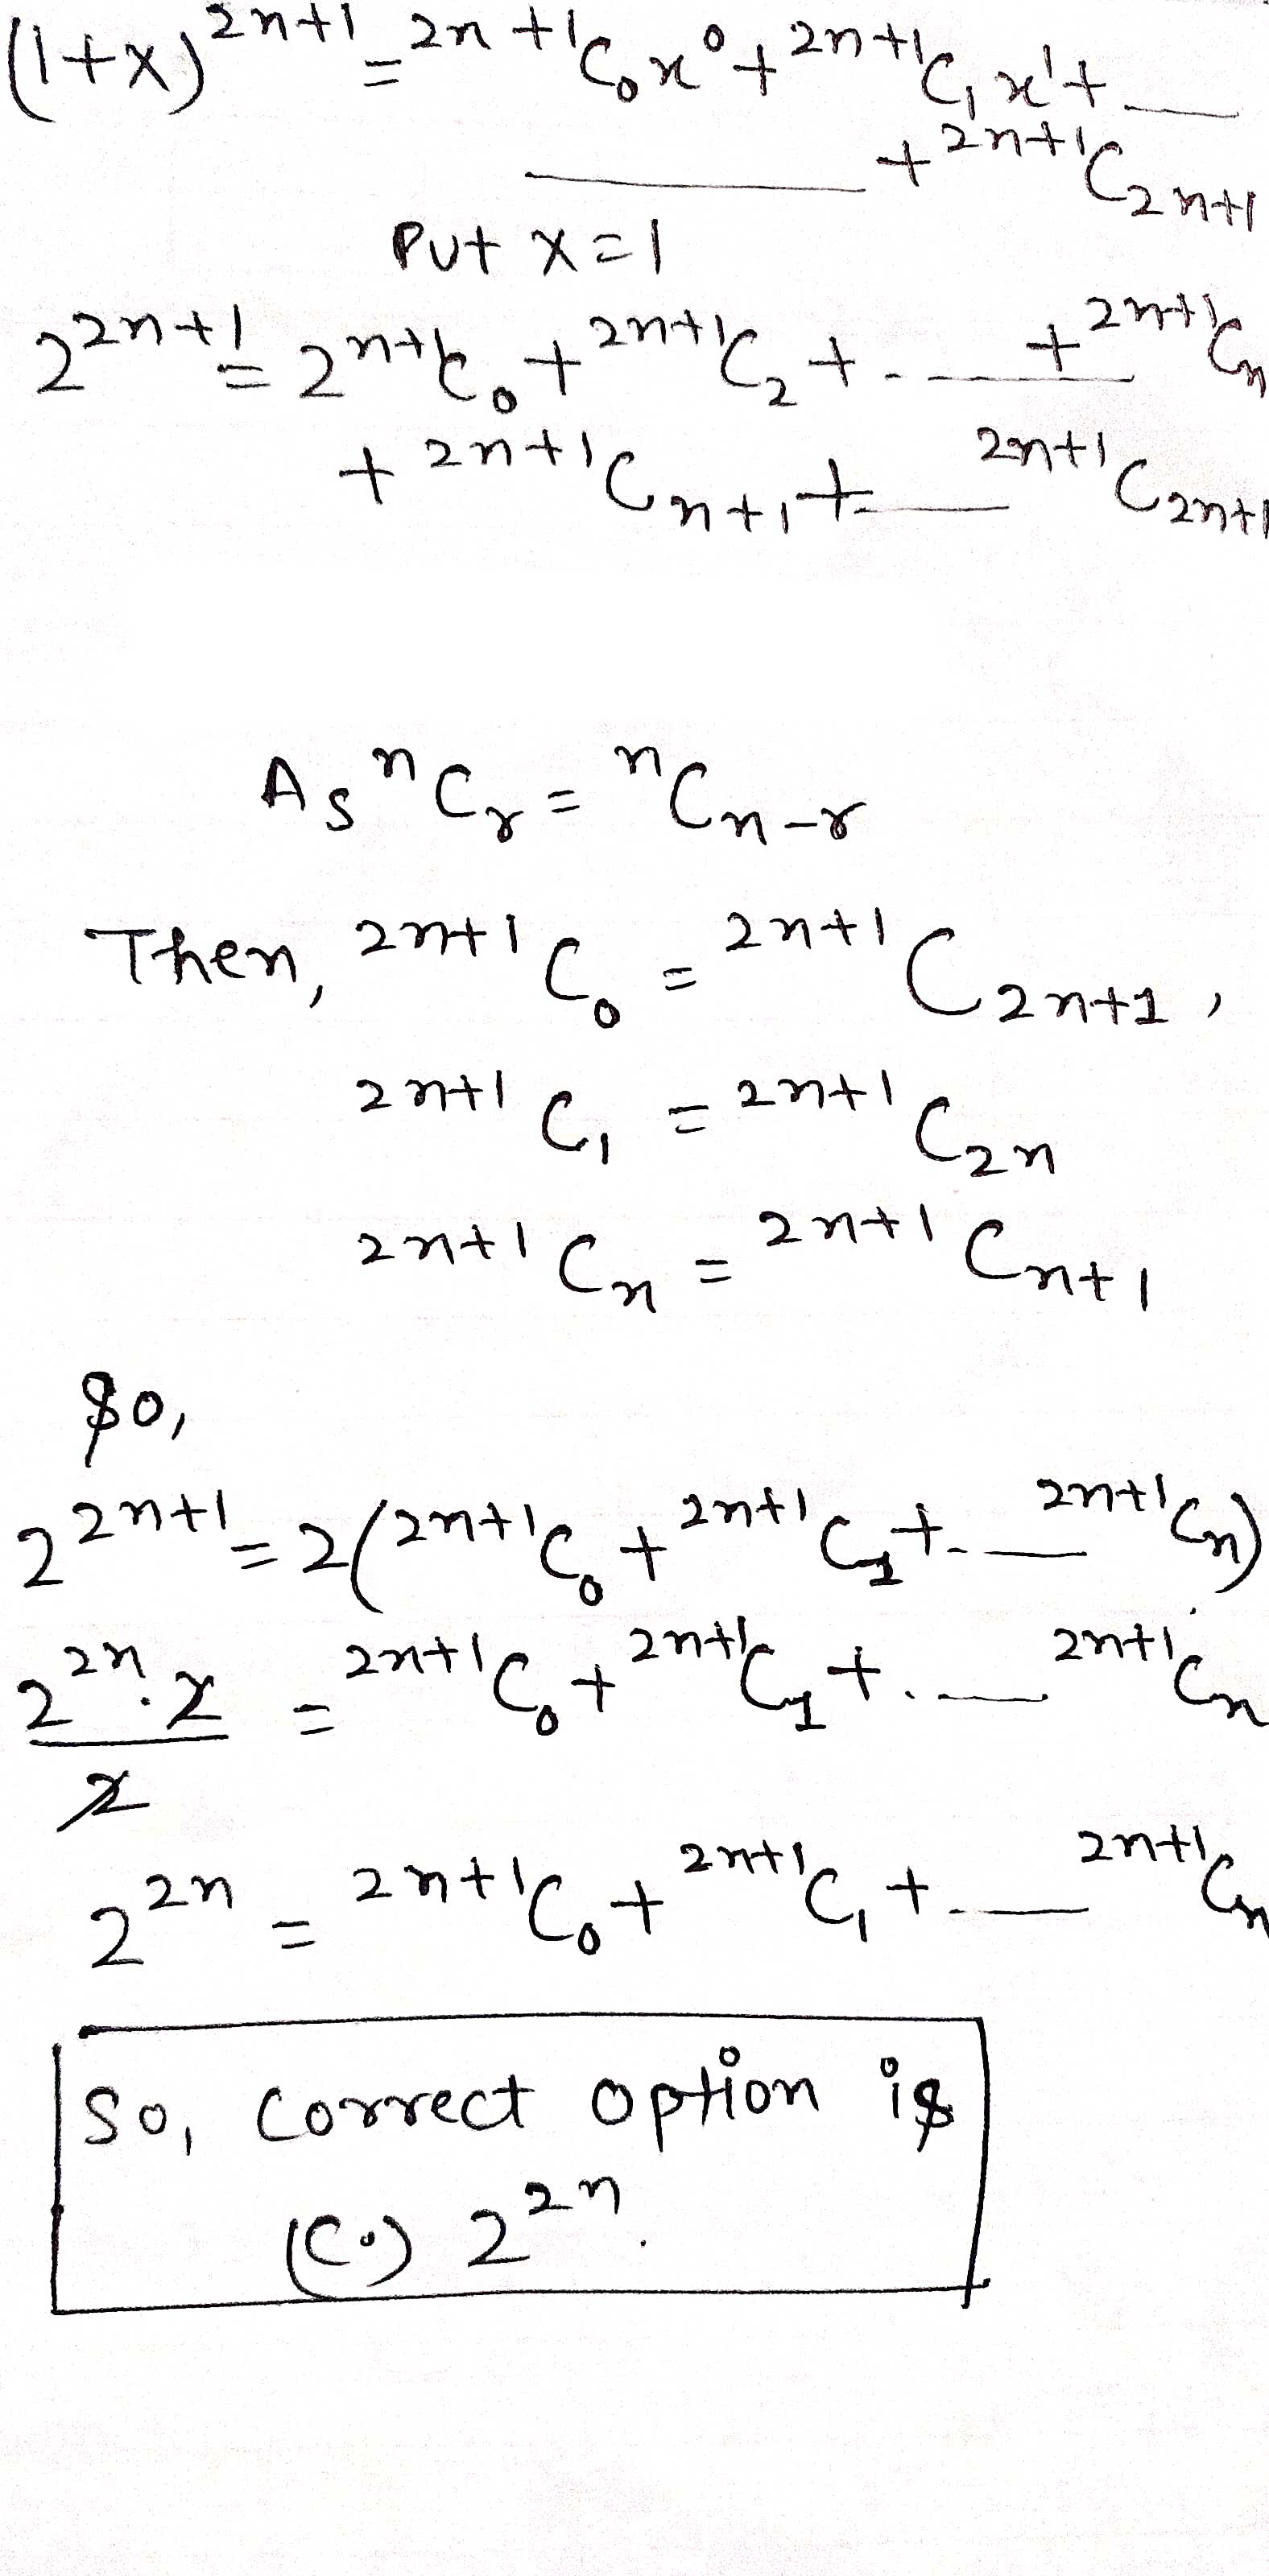 (1+x)²ⁿ⁺¹ = ²ⁿ⁺¹C₀x⁰ + ²ⁿ⁺¹C₁x¹ + __
__ + ²ⁿ⁺¹C₂ₙ₊₁
Put x=1
2²ⁿ⁺¹ = 2ⁿ⁺¹C₀ + ²ⁿ⁺¹C₂ + - __ + ²ⁿ⁺¹Cₙ
+ ²ⁿ⁺¹Cₙ₊₁ + - __ ²ⁿ⁺¹C₂ₙ₊₁
As ⁿCᵣ = ⁿCₙ₋ᵣ
Then, ²ⁿ⁺¹C₀ = ²ⁿ⁺¹C₂ₙ₊₁ ,
²ⁿ⁺¹C₁ = ²ⁿ⁺¹C₂ₙ
²ⁿ⁺¹Cₙ = ²ⁿ⁺¹Cₙ₊₁
So,
2²ⁿ⁺¹ = 2(²ⁿ⁺¹C₀ + ²ⁿ⁺¹C₁ + - __ ²ⁿ⁺¹Cₙ)
2²ⁿ.2/2 = ²ⁿ⁺¹C₀ + ²ⁿ⁺¹C₁ + . __ ²ⁿ⁺¹Cₙ
2²ⁿ = ²ⁿ⁺¹C₀ + ²ⁿ⁺¹C₁ + - __ ²ⁿ⁺¹Cₙ
So, Correct option is
(C.) 2²ⁿ.